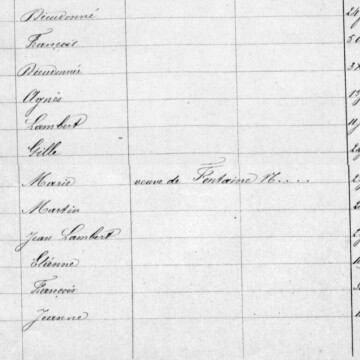 Dieudonné
François
Dieudonnée
Agnès
Lambert
Gille
Marie veuve de Fontaine N....
Martin
Jean Lambert
Etienne
François
Jeanne